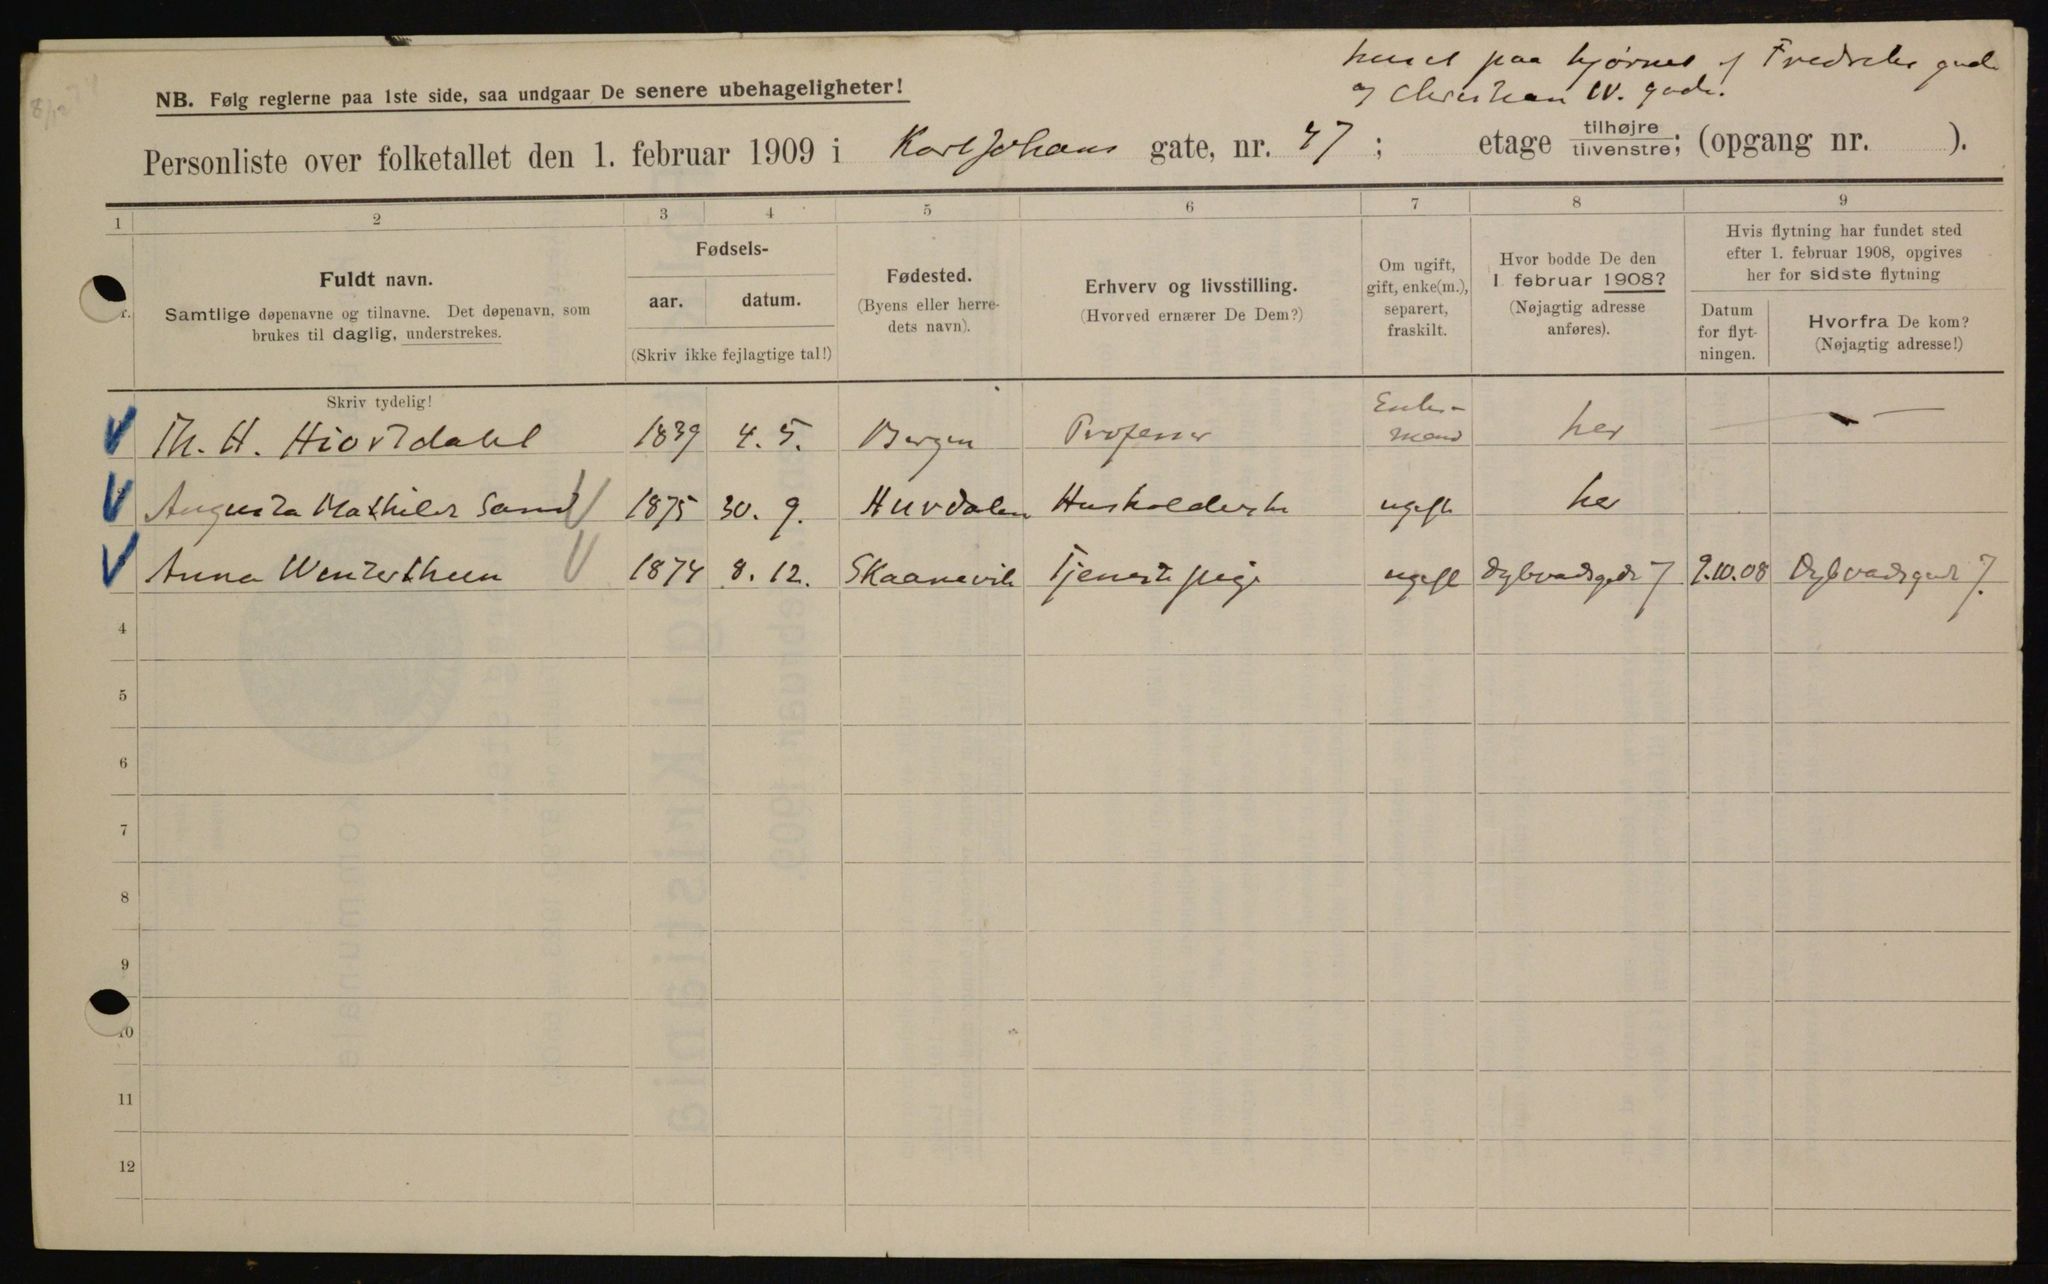 huset paa hjørnet af Fredriks gade
og Christian IV. gade.
NB. Følg reglerne paa 1ste side, saa undgaar De senere ubehageligheter!
Personliste over folketallet den 1. februar 1909 i Karl Johans gate, nr. 47; etage tilhøjre tilvenstre; (opgang nr. ).
1 2 3 4 5 6 7 8 9
Fuldt navn.
Samtlige døpenavne og tilnavne. Det døpenavn, som
brukes til daglig, understrekes.
Fødsels-
aar. datum.
(Skriv ikke fejlagtige tal!)
Fødested.
(Byens eller herre-
dets navn).
Erhverv og livsstilling.
(Hvorved ernærer De Dem?)
Om ugift,
gift, enke(m.),
separert,
fraskilt.
Hvor bodde De den
1 februar 1908?
(Nøjagtig adresse
anføres).
Hvis flytning har fundet sted
efter 1. februar 1908, opgives
her for sidste flytning
Datum
for flyt-
ningen.
Hvorfra De kom?
(Nøjagtig adresse!)
Skriv tydelig!
Th. H. Hiortdahl 1839 4. 5. Bergen Professor Enke-mand her — —
Augusta Mathilde Sand 1875 30. 9. Hurdalen Husholderske ugift her
Anna Wintherthun 1874 8. 12. Skaanevik Tjenestepige ugift Dybvadsgade 7 9.10.08 Dybvadsgade 7.
4
5
6
7
8
9
10
11
12